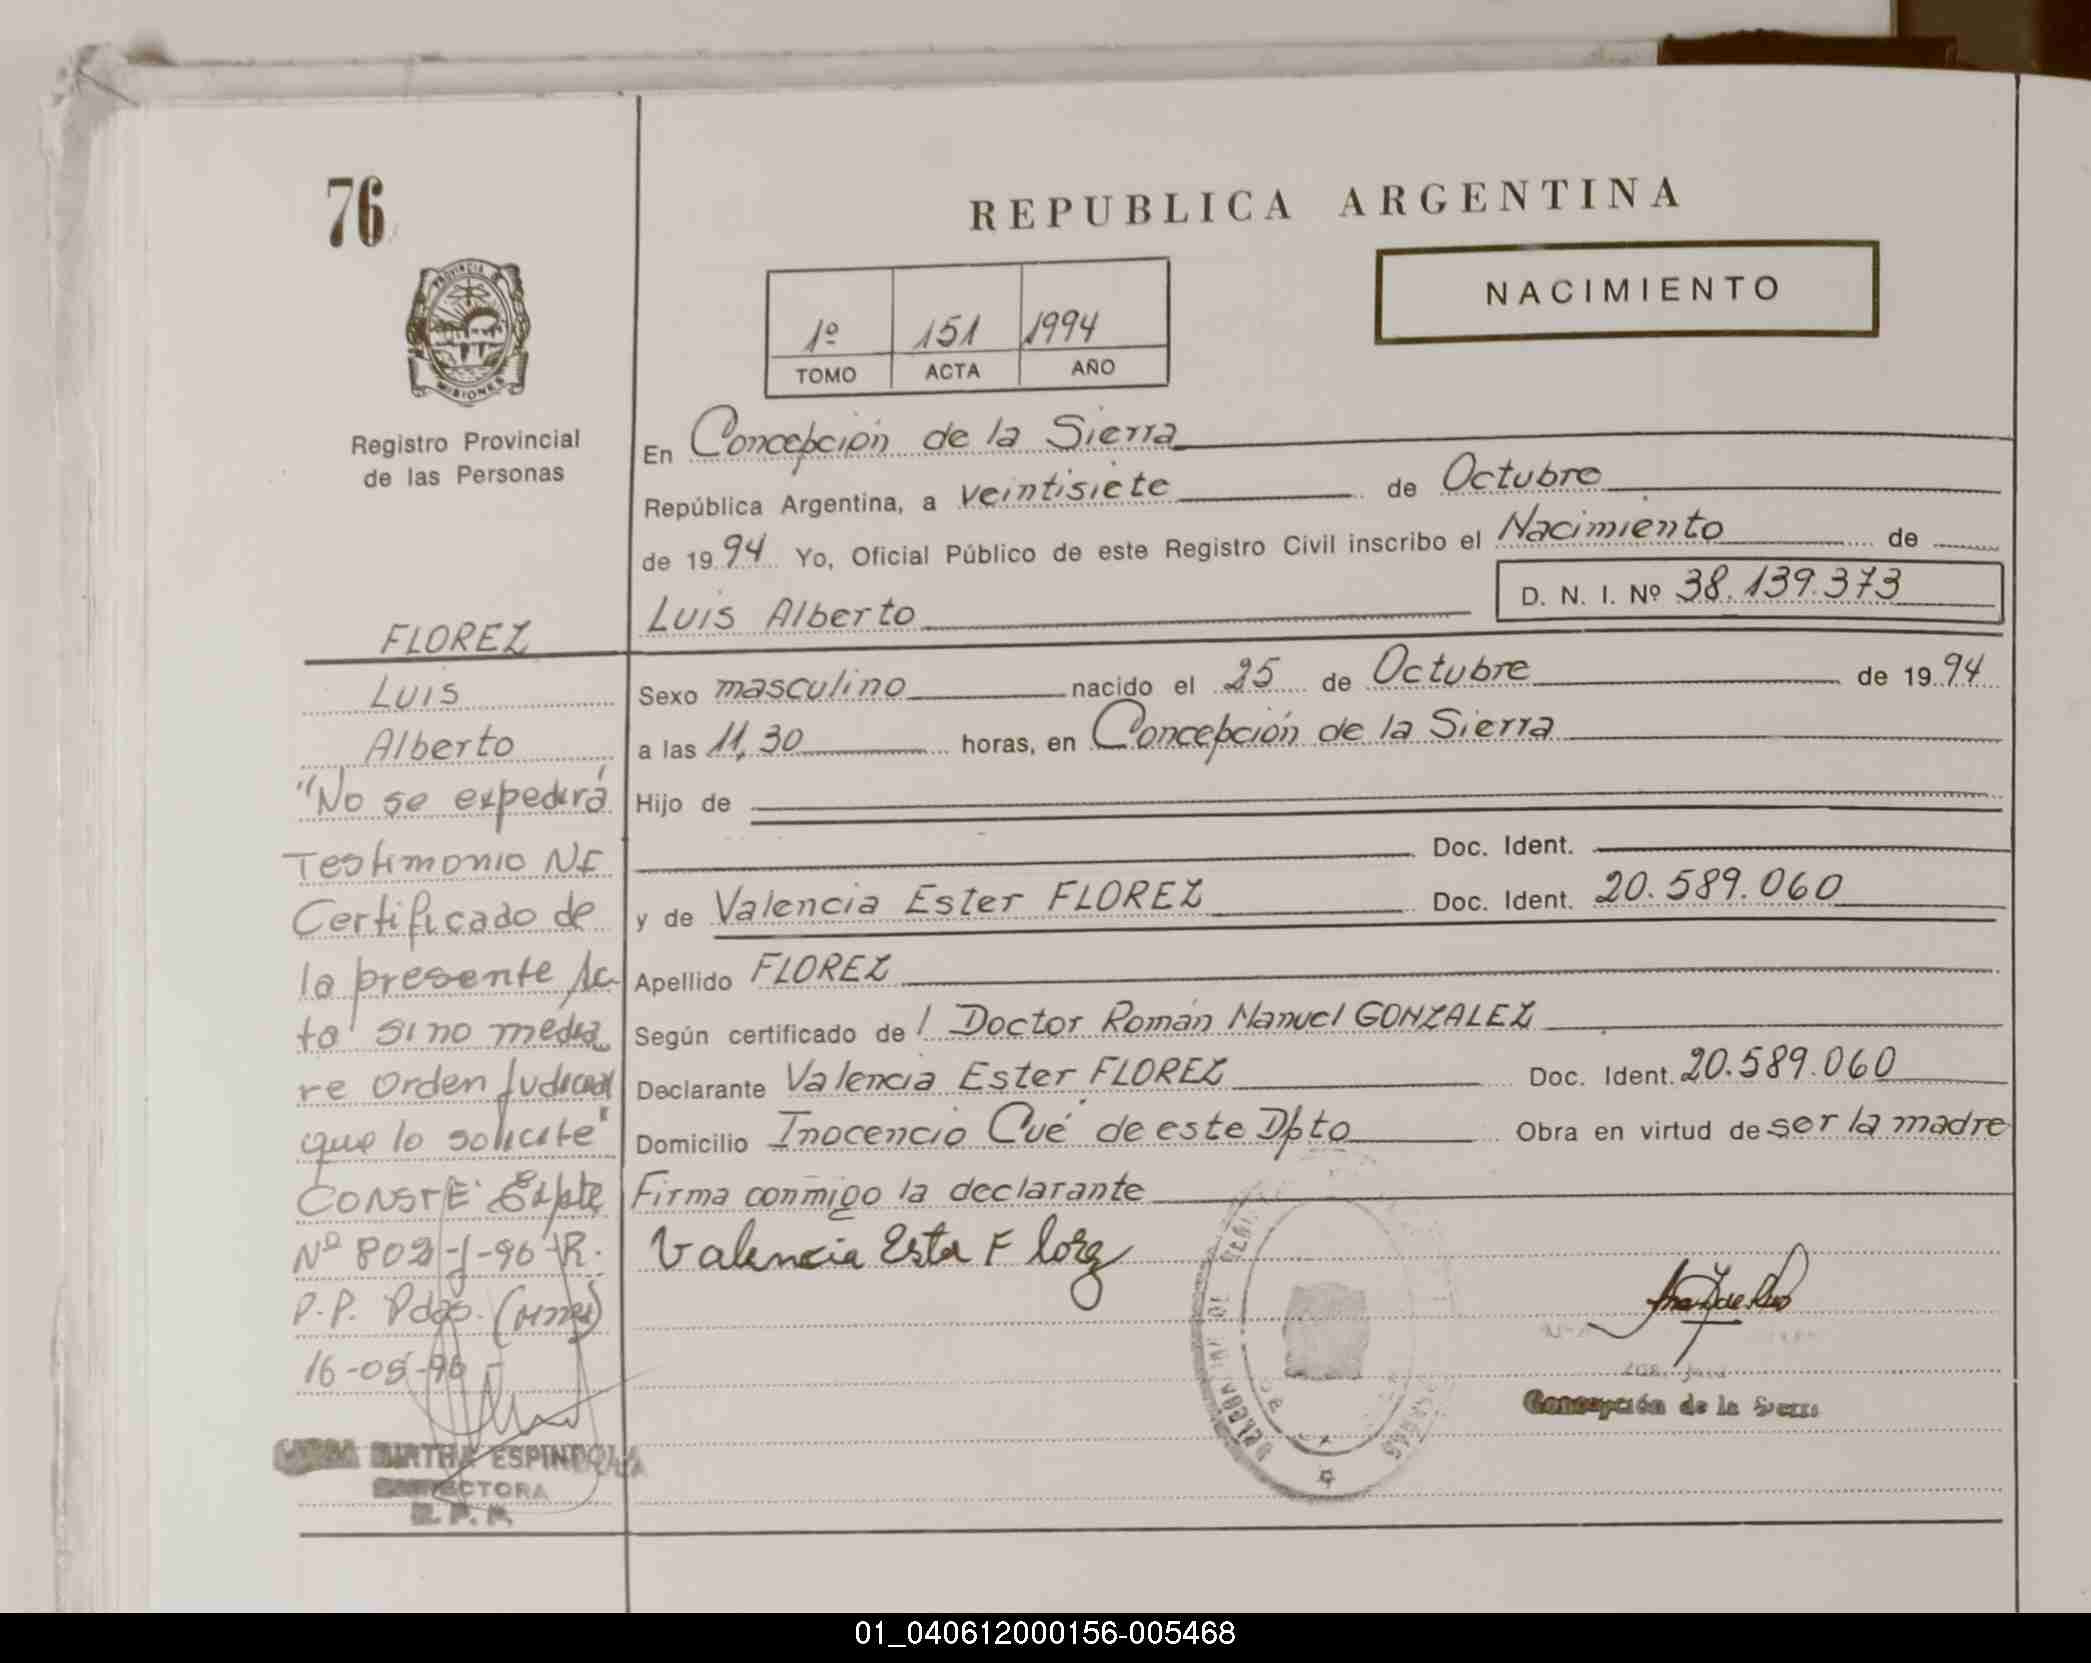 76
REPUBLICA ARGENTINA
NACIMIENTO
PROVINCIA DE
MISIONES
1º 151 1994
TOMO ACTA AÑO
Registro Provincial
de las Personas
En Concepción de la Sierra
República Argentina, a veintisiete de Octubre
de 1994 Yo, Oficial Público de este Registro Civil inscribo el Nacimiento de
D. N. I. Nº 38.139.373
Luis Alberto
Sexo masculino nacido el 25 de Octubre de 1994
a las 11,30 horas, en Concepción de la Sierra
Hijo de
Doc. Ident.
y de Valencia Ester FLOREZ Doc. Ident. 20.589.060
Apellido FLOREZ
Según certificado de l Doctor Román Manuel GONZALEZ
Declarante Valencia Ester FLOREZ Doc. Ident. 20.589.060
Domicilio Inocencio Cué de este Dpto Obra en virtud de ser la madre
Firma conmigo la declarante
Valencia Ester Florez
Concepción de la Sierra
FLOREZ
Luis
Alberto
"No se expedirá
Testimonio NI
Certificado de
la presente Ac
ta si no media
re Orden Judicial
que lo solicite"
CONSTE Expte
Nº 802-J-96-R.
P.P. Pdas.
16-05-96
MIRTHA ESPINDOLA
DIRECTORA
R. P. P.
01_040612000156-005468